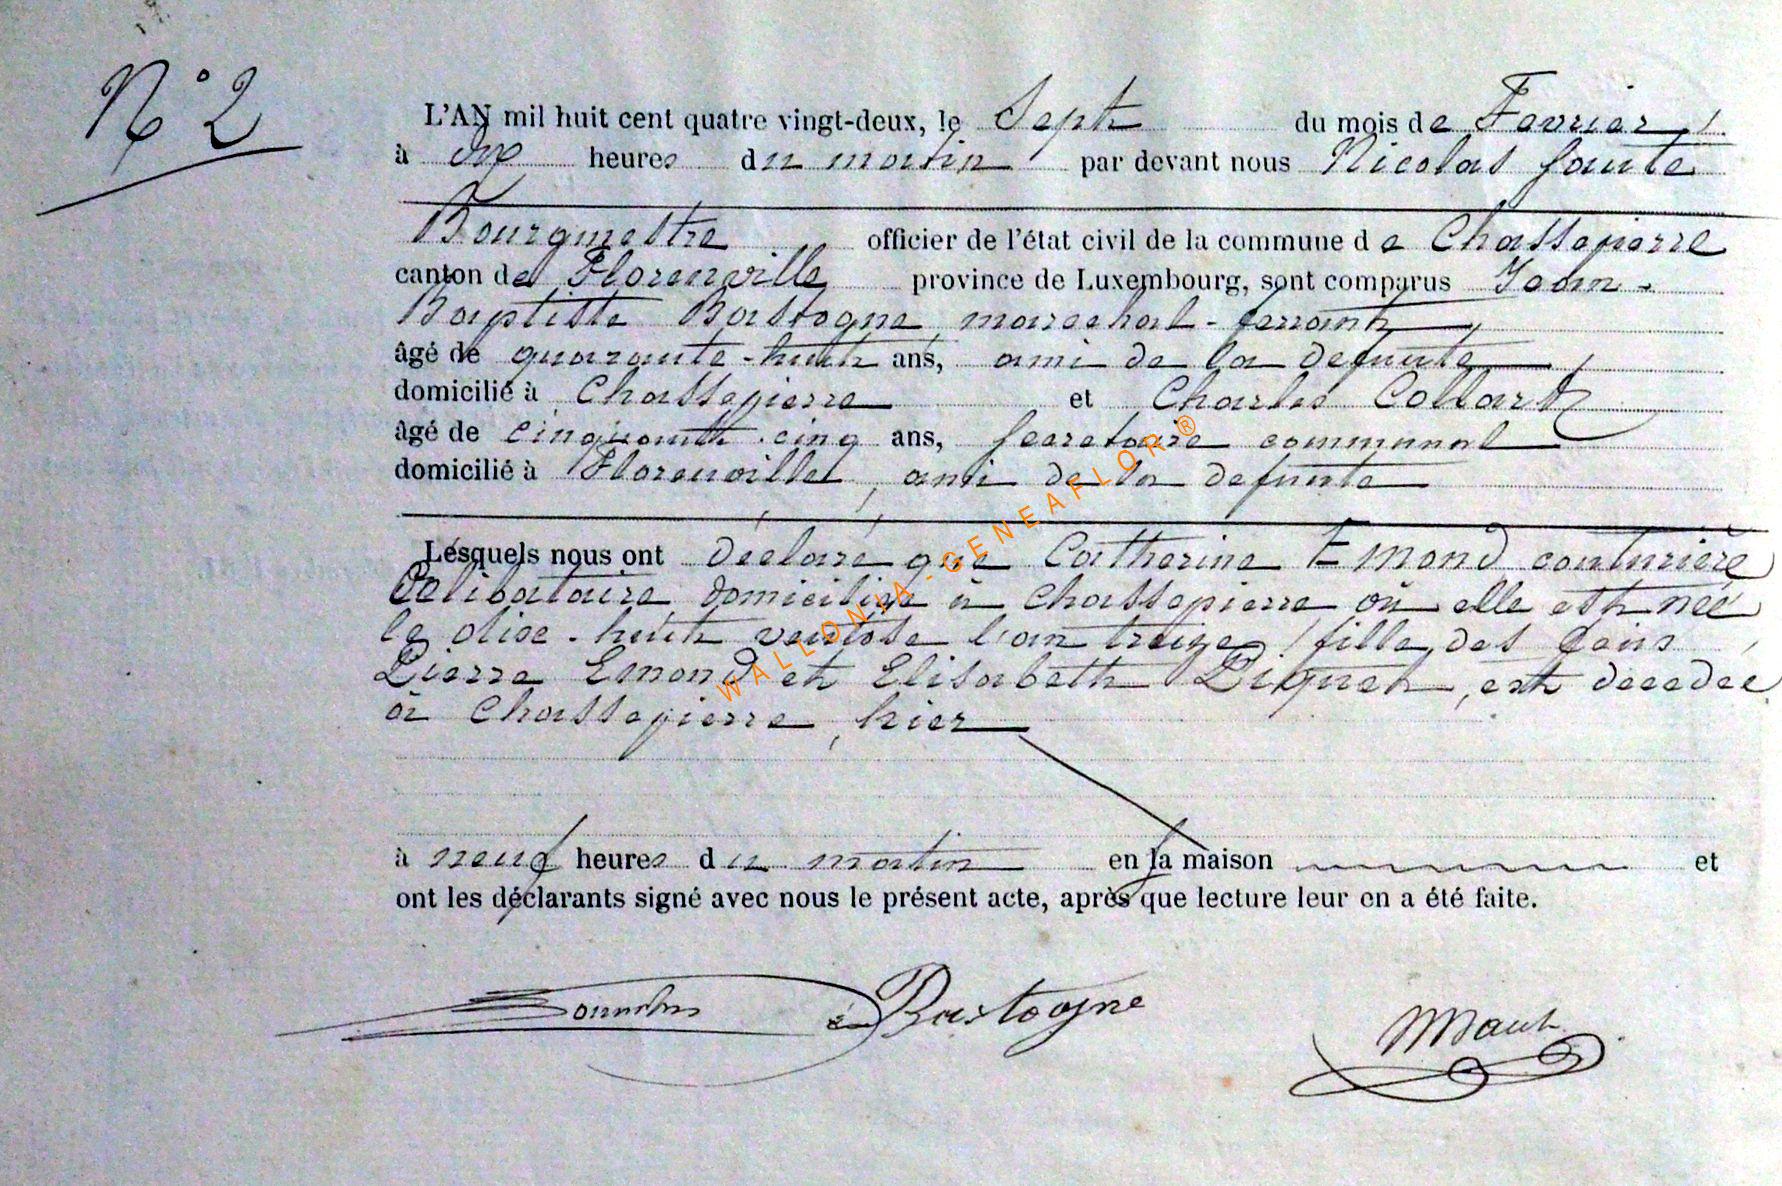 N° 2
L'AN mil huit cent quatre vingt-deux, le Sept du mois de Fevrier,
à dix heures du matin par devant nous Nicolas
Bourgmestre officier de l'état civil de la commune de Chassepierre
canton de Florenville province de Luxembourg, sont comparus Jean-
Baptiste Bastogne, marechal-ferrant,
âgé de quarante-huit ans, ami de la defunte
domicilié à Chassepierre et Charles Collart
âgé de cinquante-cinq ans, secretaire communal
domicilié à Florenville, ami de la defunte
Lesquels nous ont déclaré que Catherine Emond couturière
Celibataire, domiciliée à Chassepierre où elle est née
le dixe-huit ventose l'an treize, fille des feus
Pierre Emond et Elisabeth Piquet, est decedée
à Chassepierre, hier
à neuf heures du matin en sa maison et
ont les déclarants signé avec nous le présent acte, après que lecture leur en a été faite.
Bastogne
WALLONIA-GENEAFLOR ®